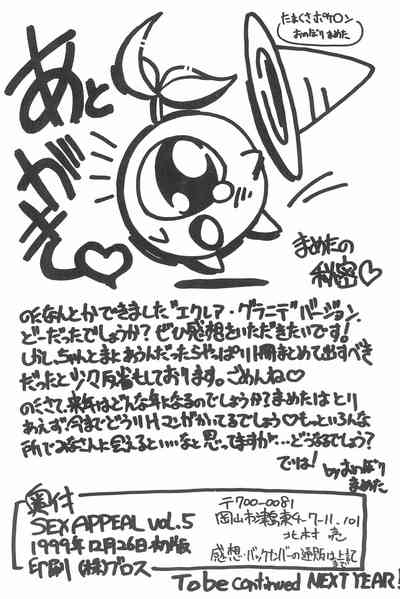 たまぐさポケロン
おのなりまめた
あとがき♡
まめたの
秘密♡
のになんとかできました"エクレア・グラニテ"バージョン。
どーだったでしょうか？ぜひ感想をいただきたいです！
しかし、ちゃんとまとめるんだったらやっぱり1冊まとめて出すべき
だったと少々反省もしております。ごめんね♡
のにさて、来年はどんな年になるのでしょうか？まめたはとり
あえず今までどうりHマンガかいてるでしょう♡もっといろんな
所でみなさんに会えるといい…なと思ってますが…どうなるでしょう？
では！
by おのなり
まめた
奥付
SEX APPEAL vol.5
1999年12月26日 初版
印刷 (株)グロス
〒700-0081
岡山市津島東4-7-11.101
北村 亮
感想・バックナンバーの通販は上記まで
To be continued NEXT YEAR!